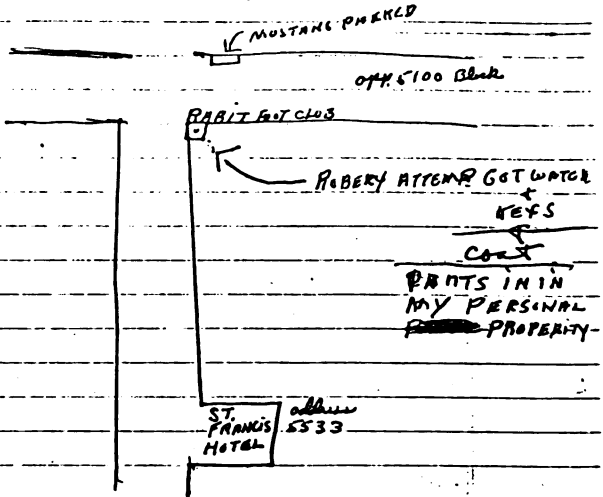 MUSTANG PARKED
opp. 5100 Block
RABIT FOOT CLUB
ROBERY ATTEMP. GOT WATCH
+
KEYS
COAT
PANTS IN IN
MY PERSONAL
PROPERITY
ST.
FRANCIS
HOTEL
address
5533